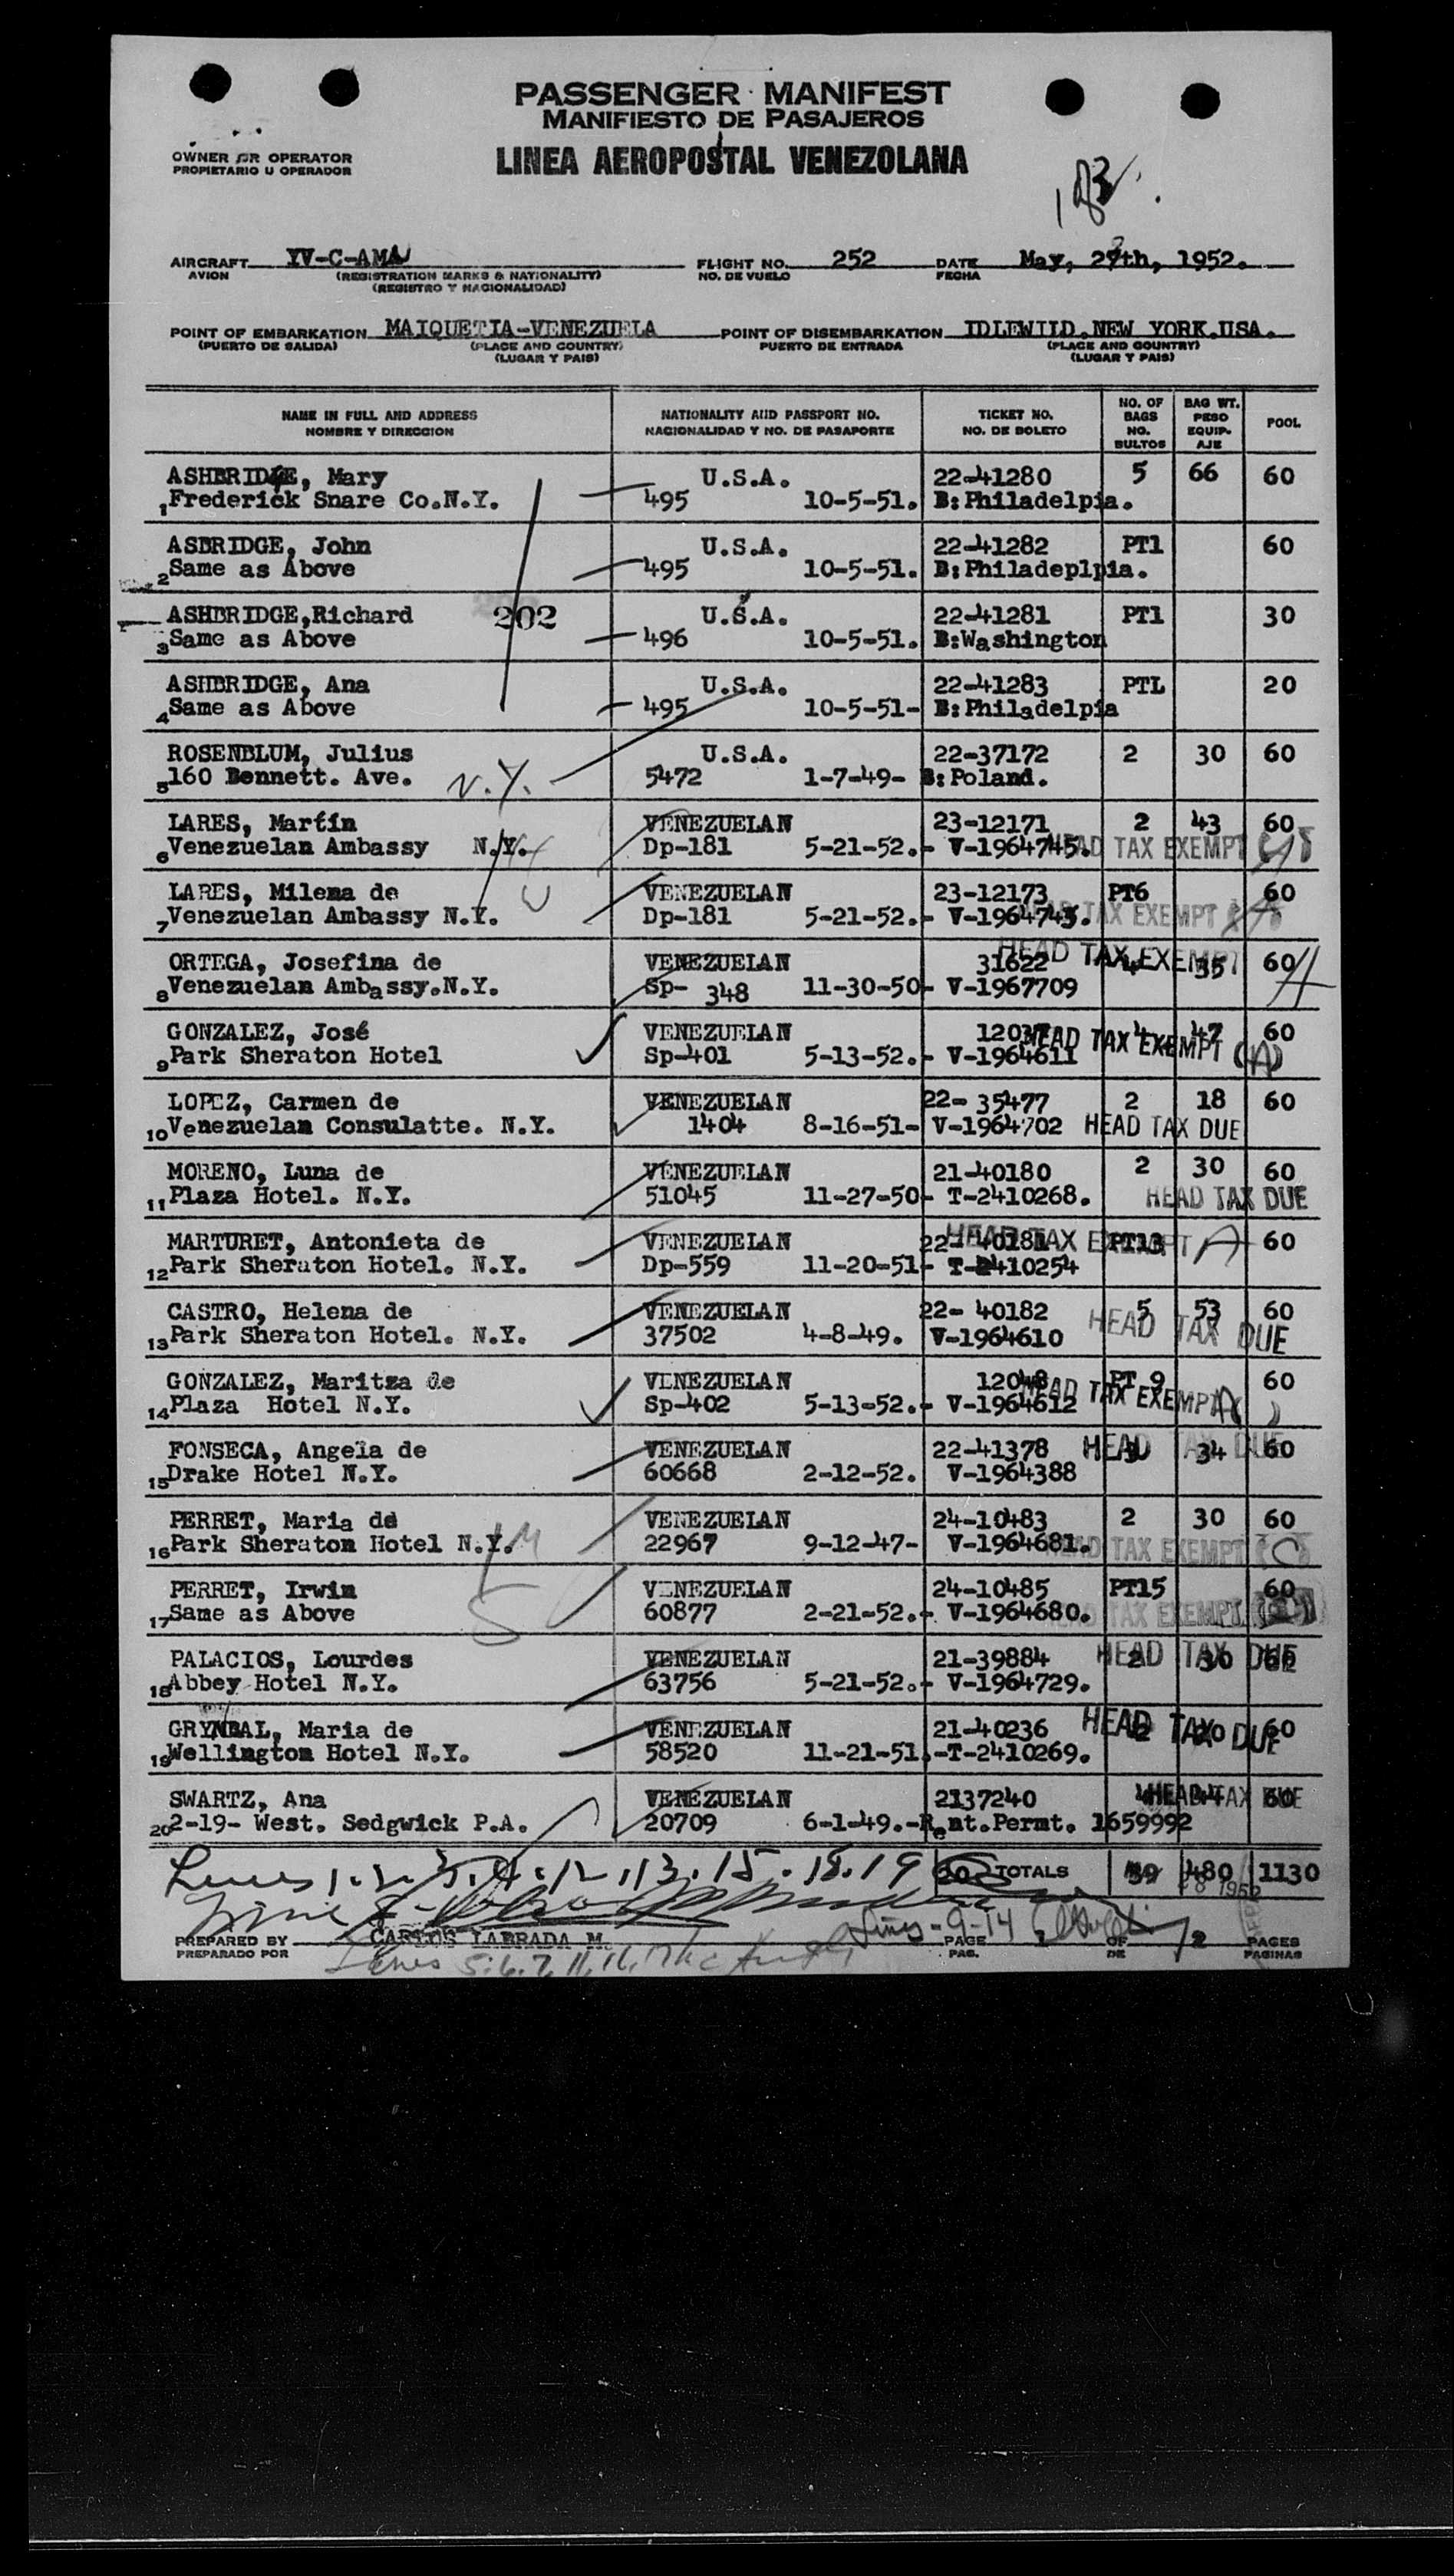 PASSENGER MANIFEST
MANIFIESTO DE PASAJEROS
OWNER OR OPERATOR
PROPIETARIO U OPERADOR
LINEA AEROPOSTAL VENEZOLANA
AIRCRAFT YV-C-AMA FLIGHT NO. 252 DATE May, 28th, 1952.
AVION (REGISTRATION MARKS & NATIONALITY) NO. DE VUELO FECHA
(REGISTRO Y NACIONALIDAD)
POINT OF EMBARKATION MAIQUETIA-VENEZUELA POINT OF DISEMBARKATION IDLEWILD,NEW YORK,USA.
(PUERTO DE SALIDA) (PLACE AND COUNTRY) PUERTO DE ENTRADA (PLACE AND COUNTRY)
(LUGAR Y PAIS) (LUGAR Y PAIS)
NAME IN FULL AND ADDRESS NATIONALITY AND PASSPORT NO. TICKET NO. NO. OF BAGS BAG WT. POOL
NOMBRE Y DIRECCION NACIONALIDAD Y NO. DE PASAPORTE NO. DE BOLETO NO. BULTOS PESO EQUIP-AJE
ASHBRIDGE, Mary U.S.A. 22-41280 5 66 60
1 Frederick Snare Co.N.Y. 495 10-5-51. B:Philadelpia.
ASBRIDGE, John U.S.A. 22-41282 PT1 60
2 Same as Above 495 10-5-51. B:Philadeplpia.
ASHBRIDGE,Richard 202 U.S.A. 22-41281 PT1 30
3 Same as Above 496 10-5-51. B:Washington
ASHBRIDGE, Ana U.S.A. 22-41283 PTL 20
4 Same as Above 495 10-5-51- B:Philadelpia
ROSENBLUM, Julius U.S.A. 22-37172 2 30 60
5 160 Bennett. Ave. N.Y. 5472 1-7-49- B:Poland.
LARES, Martin VENEZUELAN 23-12171 2 43 60
6 Venezuelan Ambassy N.Y. Dp-181 5-21-52.- V-1964745. HEAD TAX EXEMPT
LARES, Milena de VENEZUELAN 23-12173 PT6 60
7 Venezuelan Ambassy N.Y. Dp-181 5-21-52.- V-1964745. HEAD TAX EXEMPT
ORTEGA, Josefina de VENEZUELAN 31622 HEAD TAX EXEMPT 4 35 60
8 Venezuelan Ambassy.N.Y. Sp- 348 11-30-50- V-1967709
GONZALEZ, José VENEZUELAN 12037 4 47 60
9 Park Sheraton Hotel Sp-401 5-13-52.- V-1964611 HEAD TAX EXEMPT (A)
LOPEZ, Carmen de VENEZUELAN 22- 35477 2 18 60
10 Venezuelan Consulatte. N.Y. 1404 8-16-51- V-1964702 HEAD TAX DUE
MORENO, Luna de VENEZUELAN 21-40180 2 30 60
11 Plaza Hotel. N.Y. 51045 11-27-50- T-2410268. HEAD TAX DUE
MARTURET, Antonieta de VENEZUELAN 22- 40181 HEAD TAX EXEMPT A PT13 60
12 Park Sheraton Hotel. N.Y. Dp-559 11-20-51- T-2410254
CASTRO, Helena de VENEZUELAN 22- 40182 5 53 60
13 Park Sheraton Hotel. N.Y. 37502 4-8-49. V-1964610 HEAD TAX DUE
GONZALEZ, Maritza de VENEZUELAN 12048 PT 9 60
14 Plaza Hotel N.Y. Sp-402 5-13-52.- V-1964612 HEAD TAX EXEMPT
FONSECA, Angela de VENEZUELAN 22-41378 HEAD TAX DUE 3 34 60
15 Drake Hotel N.Y. 60668 2-12-52. V-1964388
PERRET, Maria de VENEZUELAN 24-10483 2 30 60
16 Park Sheraton Hotel N.Y. 22967 9-12-47- V-1964681. HEAD TAX EXEMPT
PERRET, Irwin VENEZUELAN 24-10485 PT15 60
17 Same as Above 60877 2-21-52.- V-1964680. HEAD TAX EXEMPT
PALACIOS, Lourdes VENEZUELAN 21-39884 HEAD TAX DUE 2 30 60
18 Abbey Hotel N.Y. 63756 5-21-52.- V-1964729.
GRYNBAL, Maria de VENEZUELAN 21-40236 HEAD TAX DUE 2 20 60
19 Wellington Hotel N.Y. 58520 11-21-51.-T-2410269.
SWARTZ, Ana VENEZUELAN 2137240 HEAD TAX DUE 4 44 60
20 2-19- West. Sedgwick P.A. 20709 6-1-49.-Rent.Permt. 1659992
Lines 1.2.3.4.12.13.15.18.19 20 TOTALS 39 480 1130
PREPARED BY CARLOS LABRADA M. Lines-9-14 PAGE 1 OF 2 PAGES
PREPARADO POR PAG. DE PAGINAS
Lines 5.6.7.11.16.17